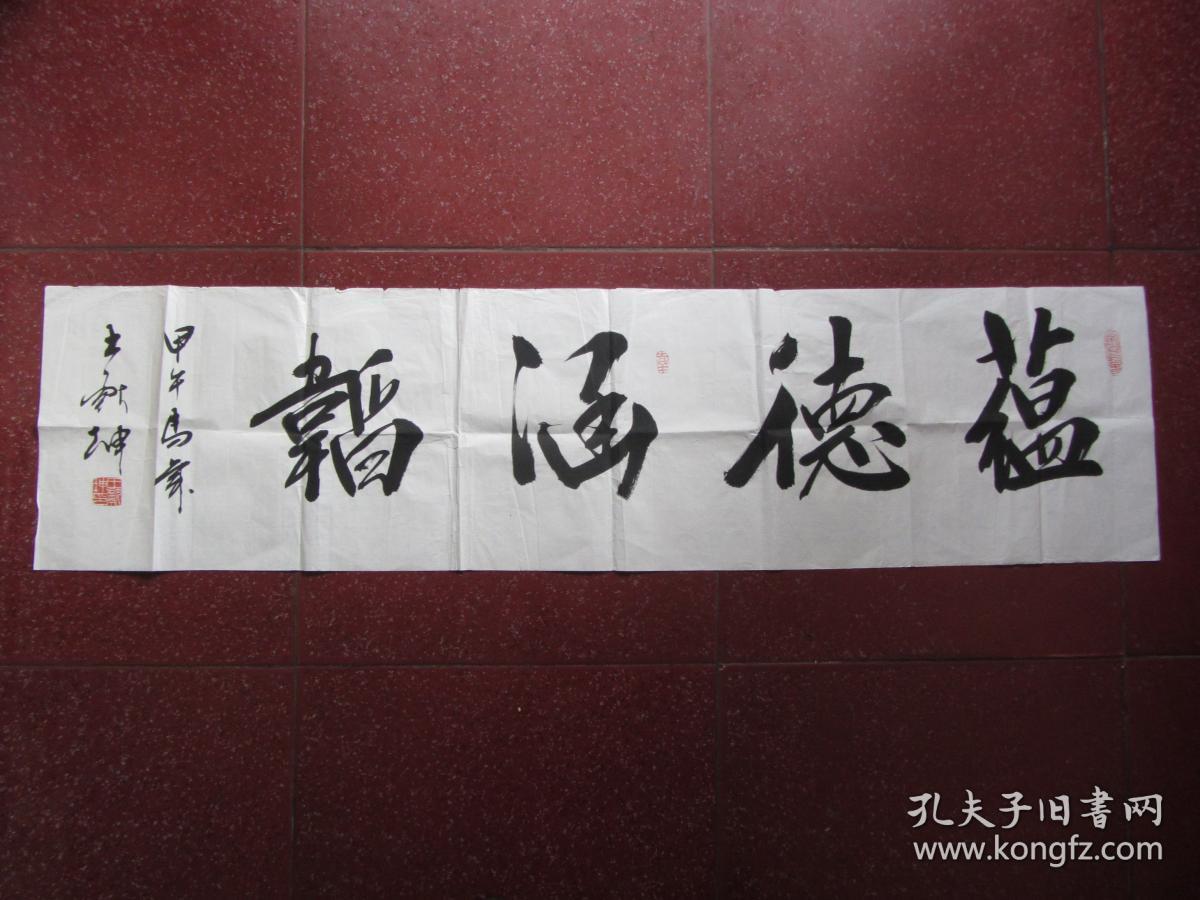 蕴德涵韬
甲午马年
孔夫子旧書网
www.kongfz.com